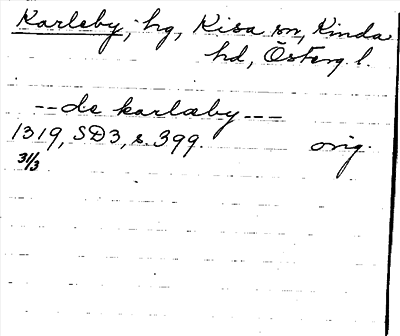 Karleby, hg, Kisa sn, Kinda
hd, Österg. l.
-- de karlæby ---
1319, SD3, s. 399. orig.
31/3